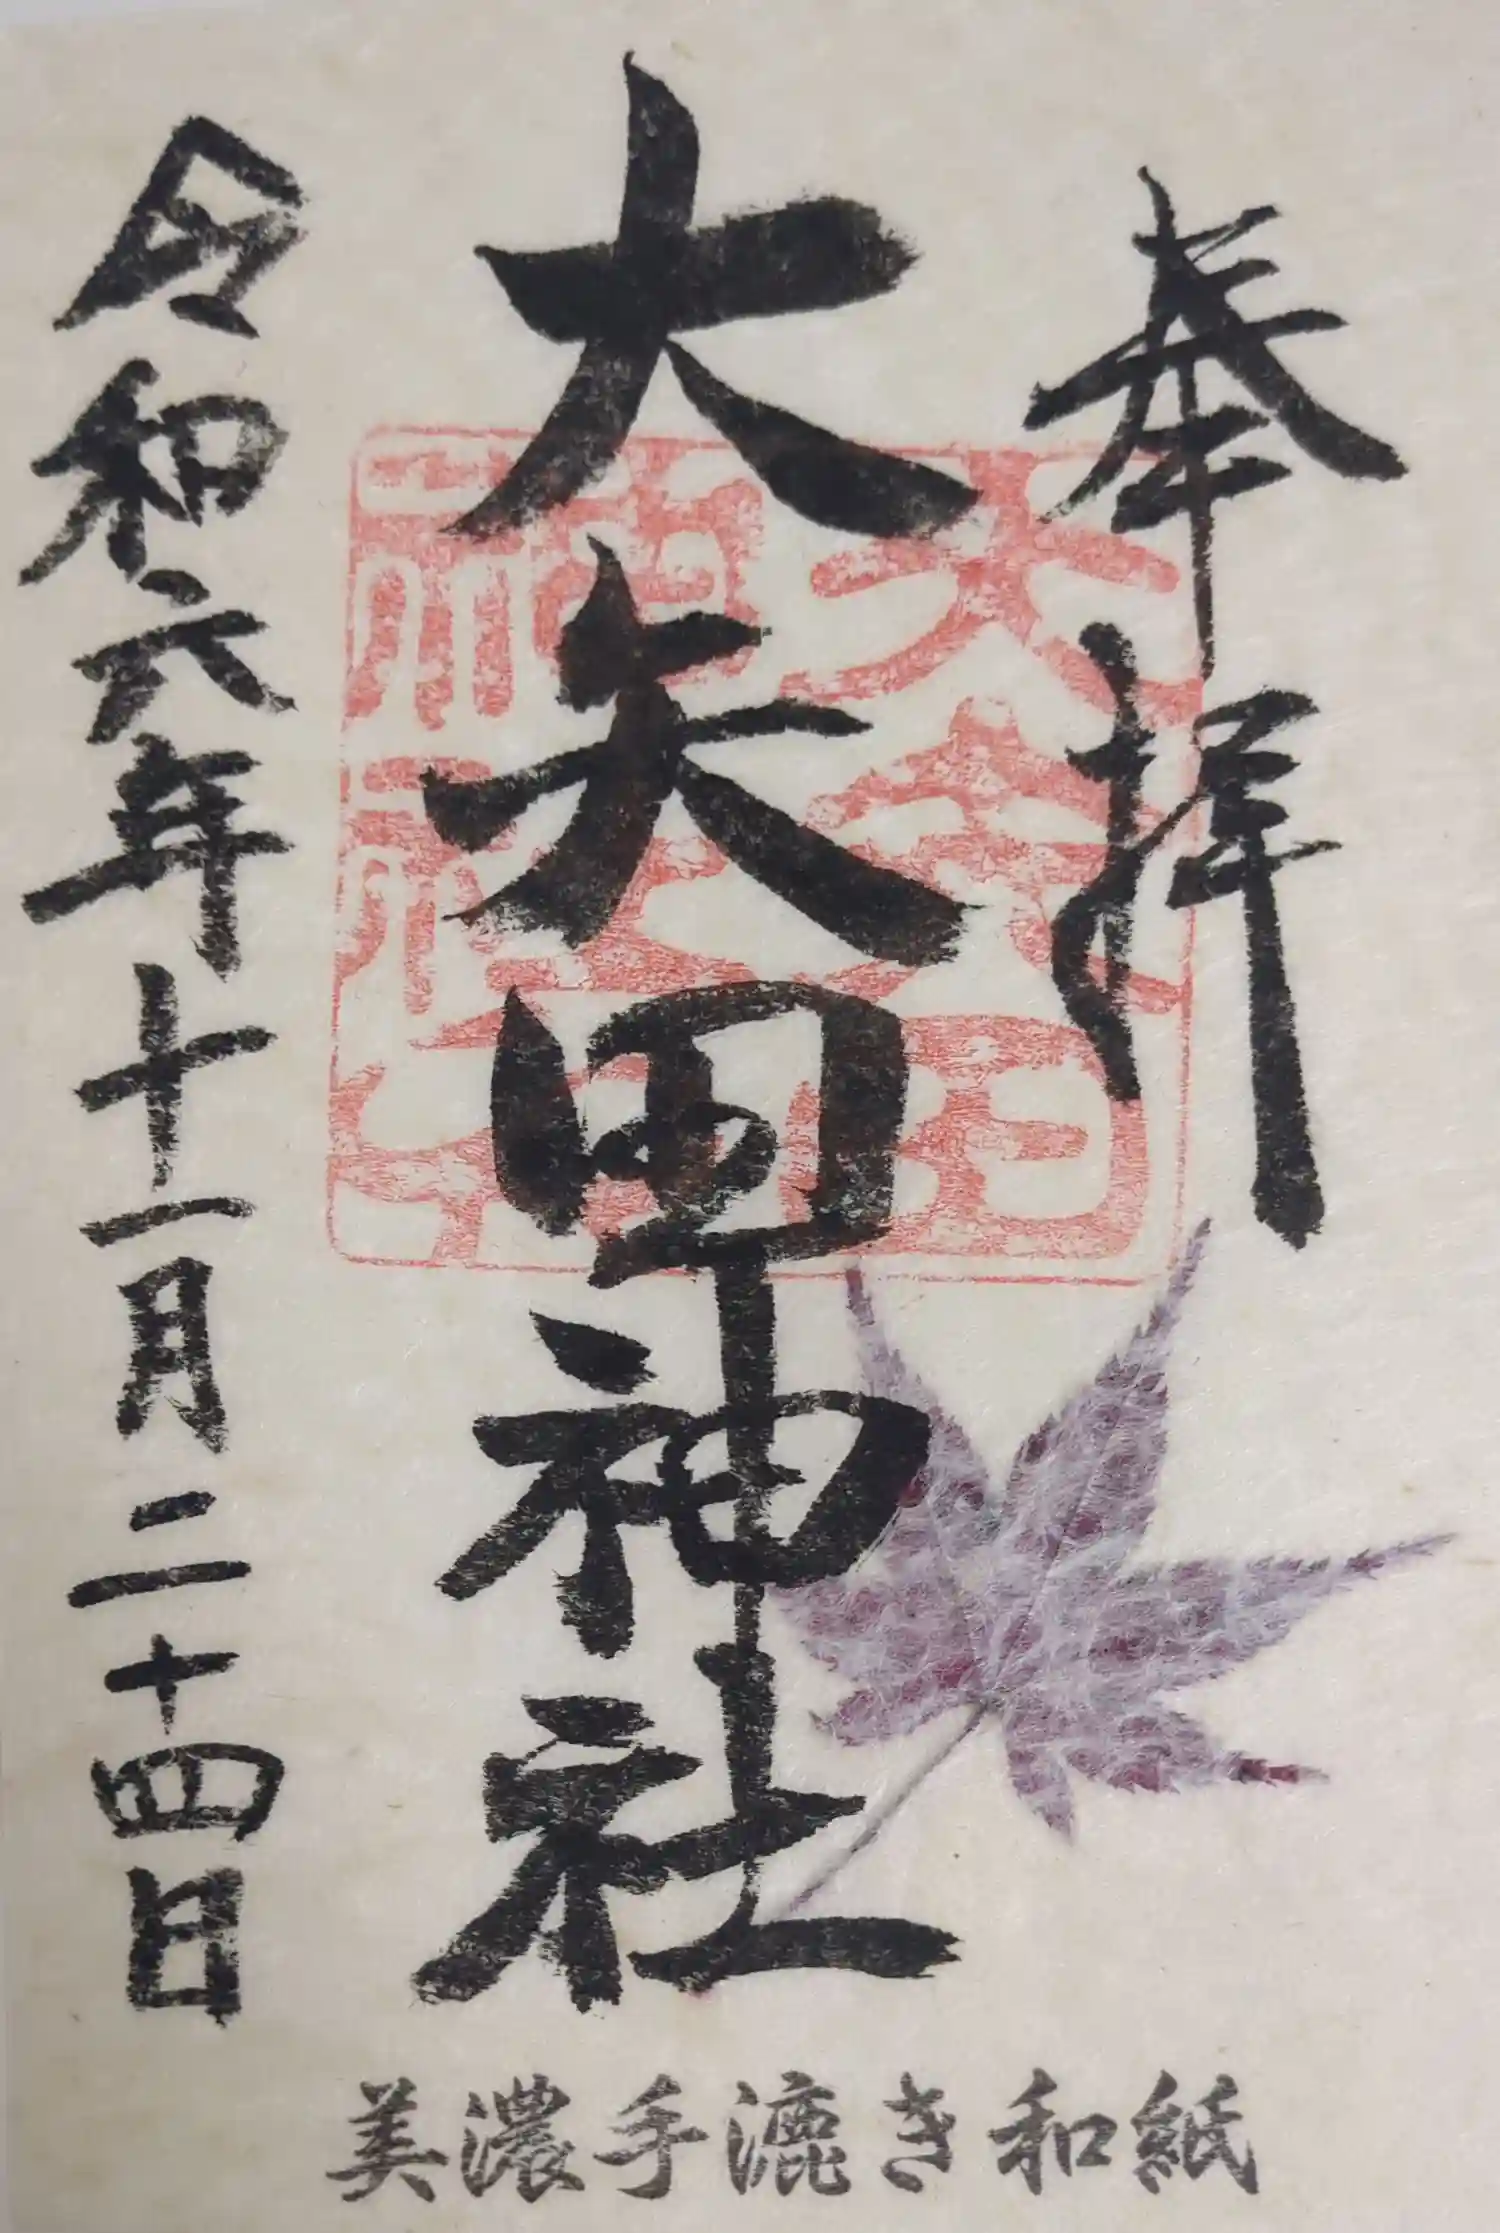 奉拝
大矢田神社
令和六年十一月二十四日
大矢田神社
美濃手漉き和紙